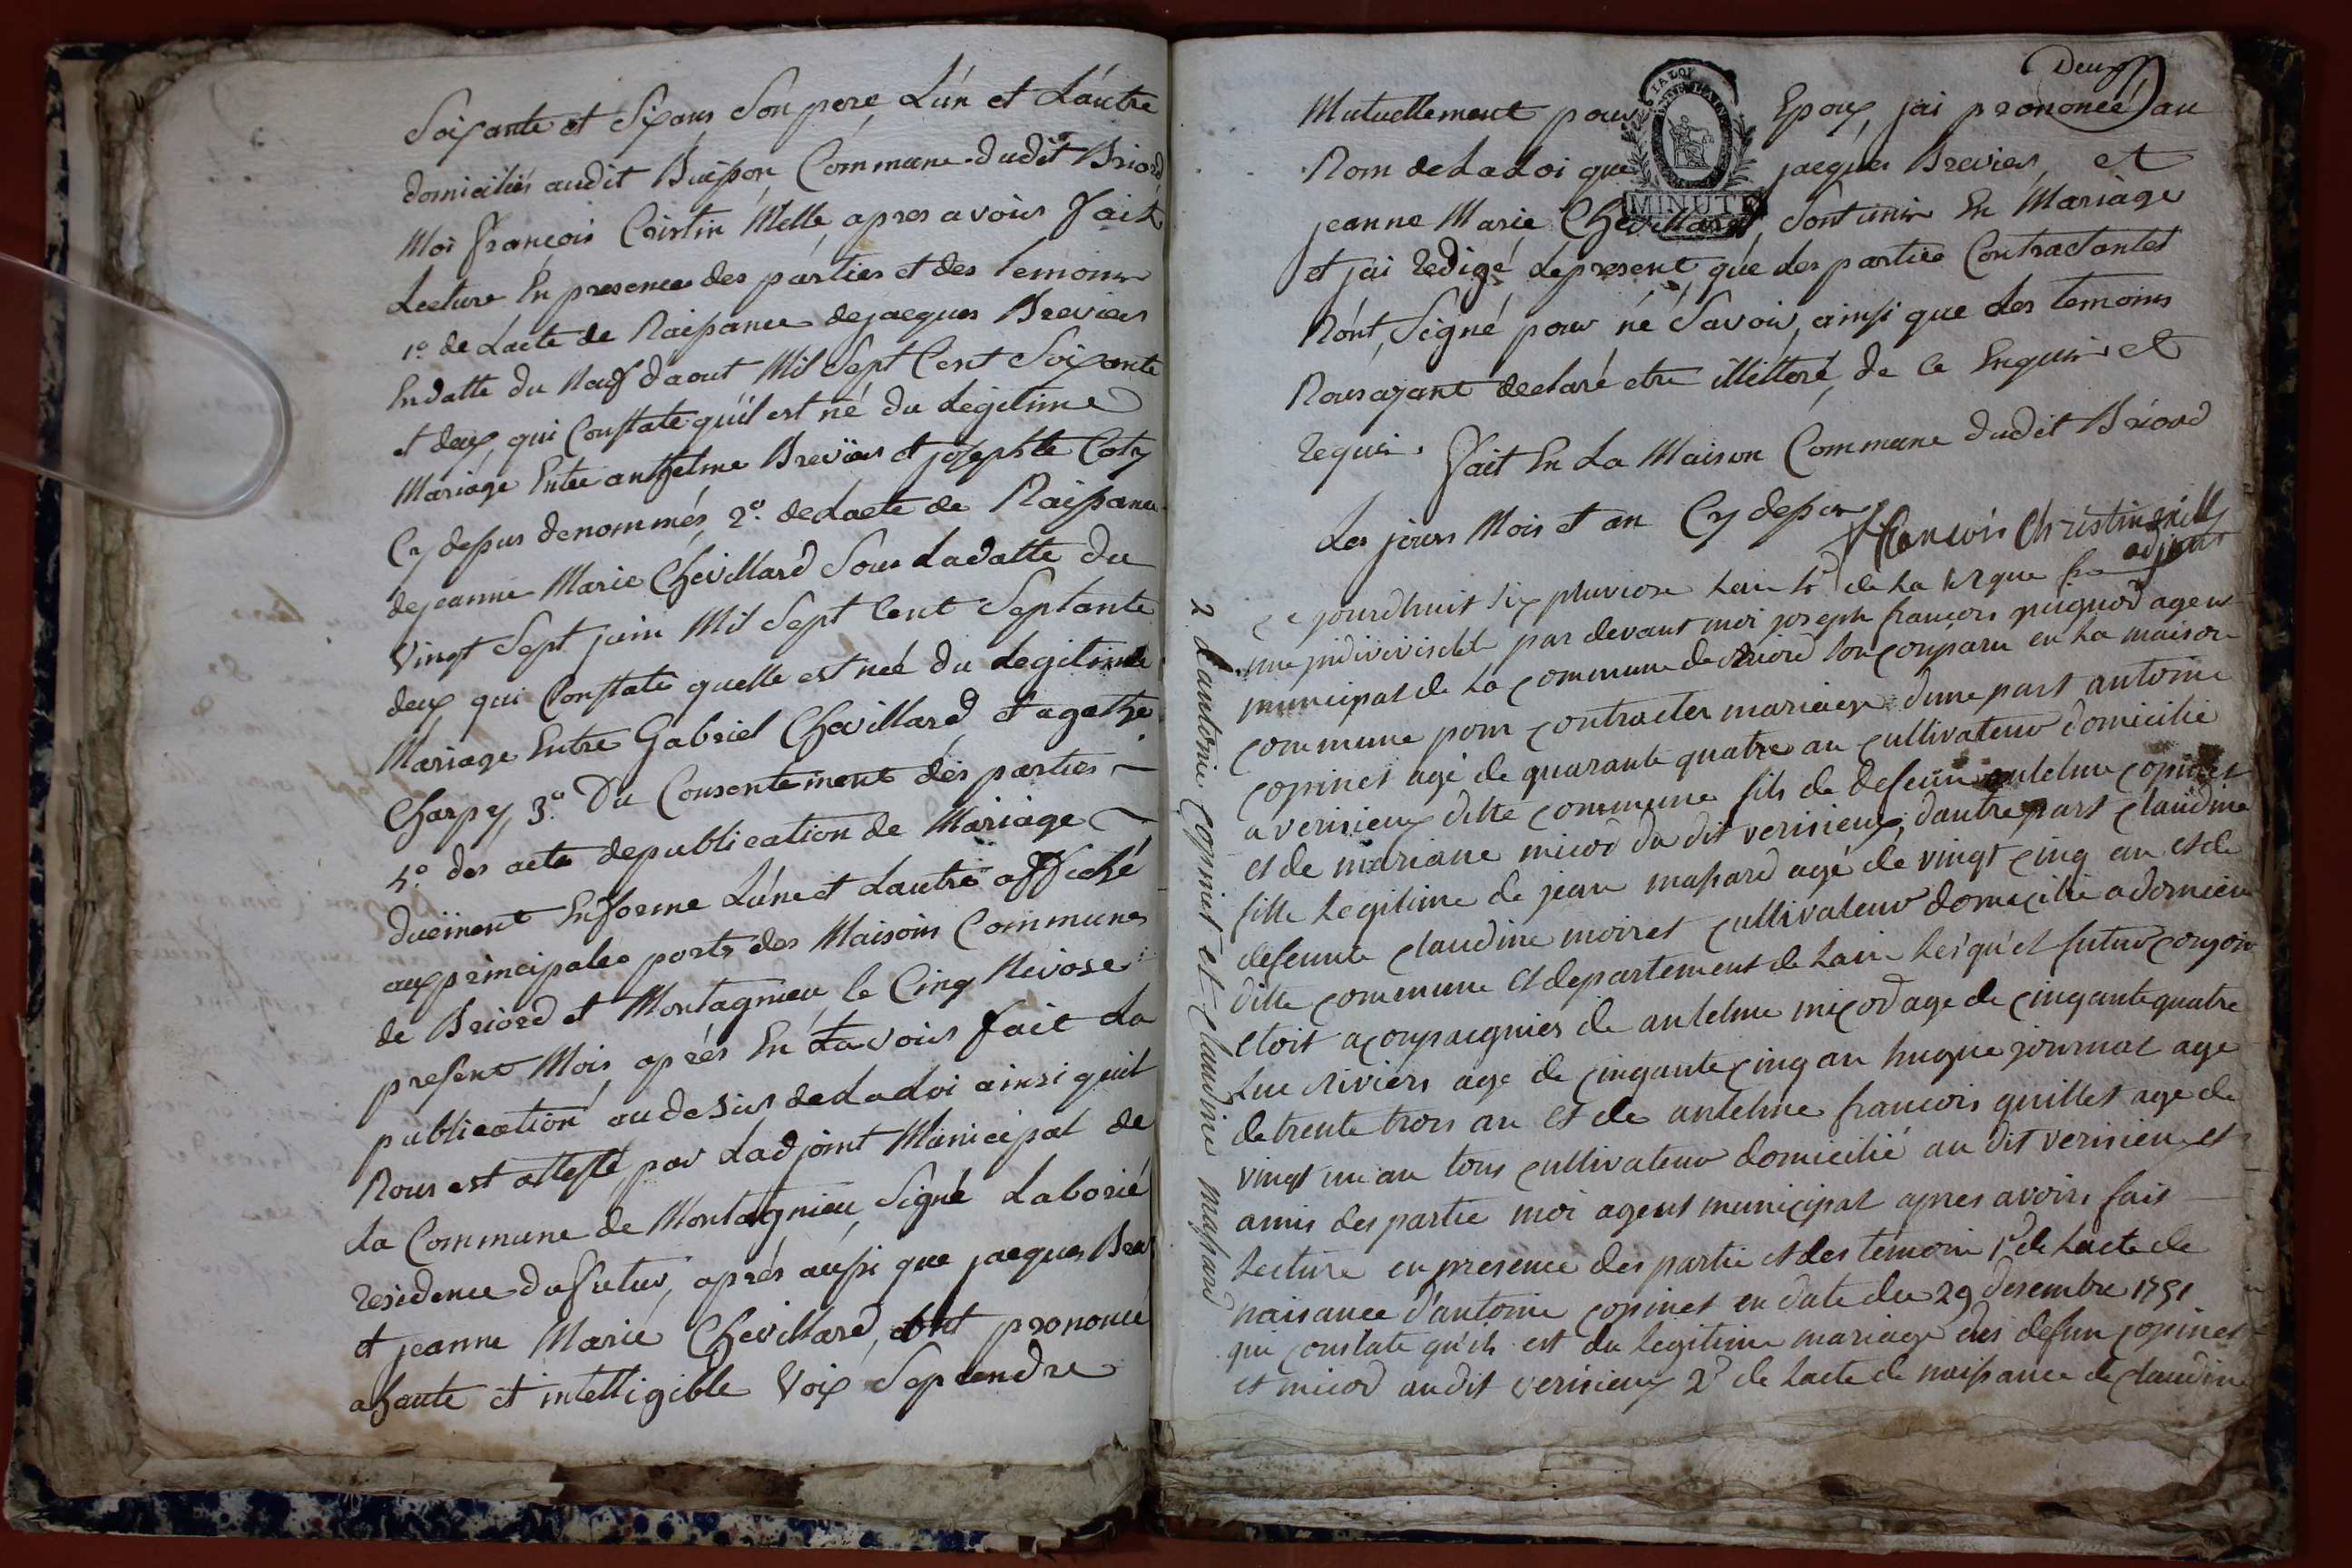 Soixante et Six ans Son pere, L'un et L'autre
domiciliés audit Buisson, Commune dudit Briord,
Moi françois Cristin Melle, apres avoir fait
Lecture En presence des parties et des temoins
1.º de Lacte de Naissance de jacques Brevier
En datte du Neuf d'aout Mil Sept Cent Soixante
et deux, qui Constate quil est né du Legitime
Mariage Entre anthelme Brevier et josephte Coty
Cy dessus denommés, 2.º de Lacte de Naissance
de jeanne Marie Chevillard Sous La datte du
Vingt Sept juin Mil Sept Cent Septante
deux qui Constate quelle est née du Legitime
Mariage Entre Gabriel Chevillard, et agathe
Charpy, 3.º Du Consentement des parties
4.º des acte de publication de Mariage
duëment En forme L'une et Lautre affiché
aux principales ports des Maisons Communes
de Briord et Montagnieu, le Cinq Nivose
present Mois, après En avoir fait La
publication au desir de La Loi ainsi quil
Nous est attesté, par Ladjoint Municipal de
La Commune de Montagnieu, Signé Laborié
Residence du futur, après aussi que jacques Brev
et jeanne Marie Chevillard, ont prononcé
a haute et intelligible Voix Se prendre
Deux
Mutuellement pour Epoux, jai prononcé au
LA LOI
Nom de La Loi que jacques Brevier, et
MINUTE
jeanne Marie Chevillard, Sont unis En Mariage
et jai Redigé Le present, que Les parties Contractantes
N'ont Signé pour ne Savoir, ainsi que Les temoins
Nous ayant declaré etre illitteré, de Ce Enquis et
Requis. fait En La Maison Commune dudit Briord
Les jours Mois et an Cy dessus françois Christin melly
adjoint
Ce jourdhuit Six pluviose Lan 4e de La Repque fr
une jndivivisible par devant moi joseph francois guignod agent
municipal de La Commune de Briord Son Comparu en La maison
Commune pour Contracter mariage dune part antoine
Copinet agé de quarante quatre an Cultivateur domicilié
a verisieux ditte Commune fils de defeun antelme Copinet
et de mariane micod du dit verisieux, d'autre part Claudine
fille Legitime de jean massard agé de vingt Cinq an et de
defeunte Claudine moiret Cultivateur domicilié a dornieu
ditte Commune et departement de Lain Lesqu'el futur Conjoin
Etoit acompaignies de antelme micod age de Cinqante quatre
Luc Riviers age de Cinqante Cinq an hugue journat age
de trente trois an et de antelme francois guillet age de
vingt un an tous Cultivateur domicilié au dit verisieu et
amis des partie moi agent municipal apres avoir fait
Lecture en presence des partie et des temoin 1e de Lacte de
naisance d'antoine Copinet en date du 29 desembre 1751
qui Constate qu'ils est du Legitime mariage des defun Copinet
et micod au dit verisieux 2e de Lacte de naissance de Claudine
2 d'antoine Copinet et Claudine massard